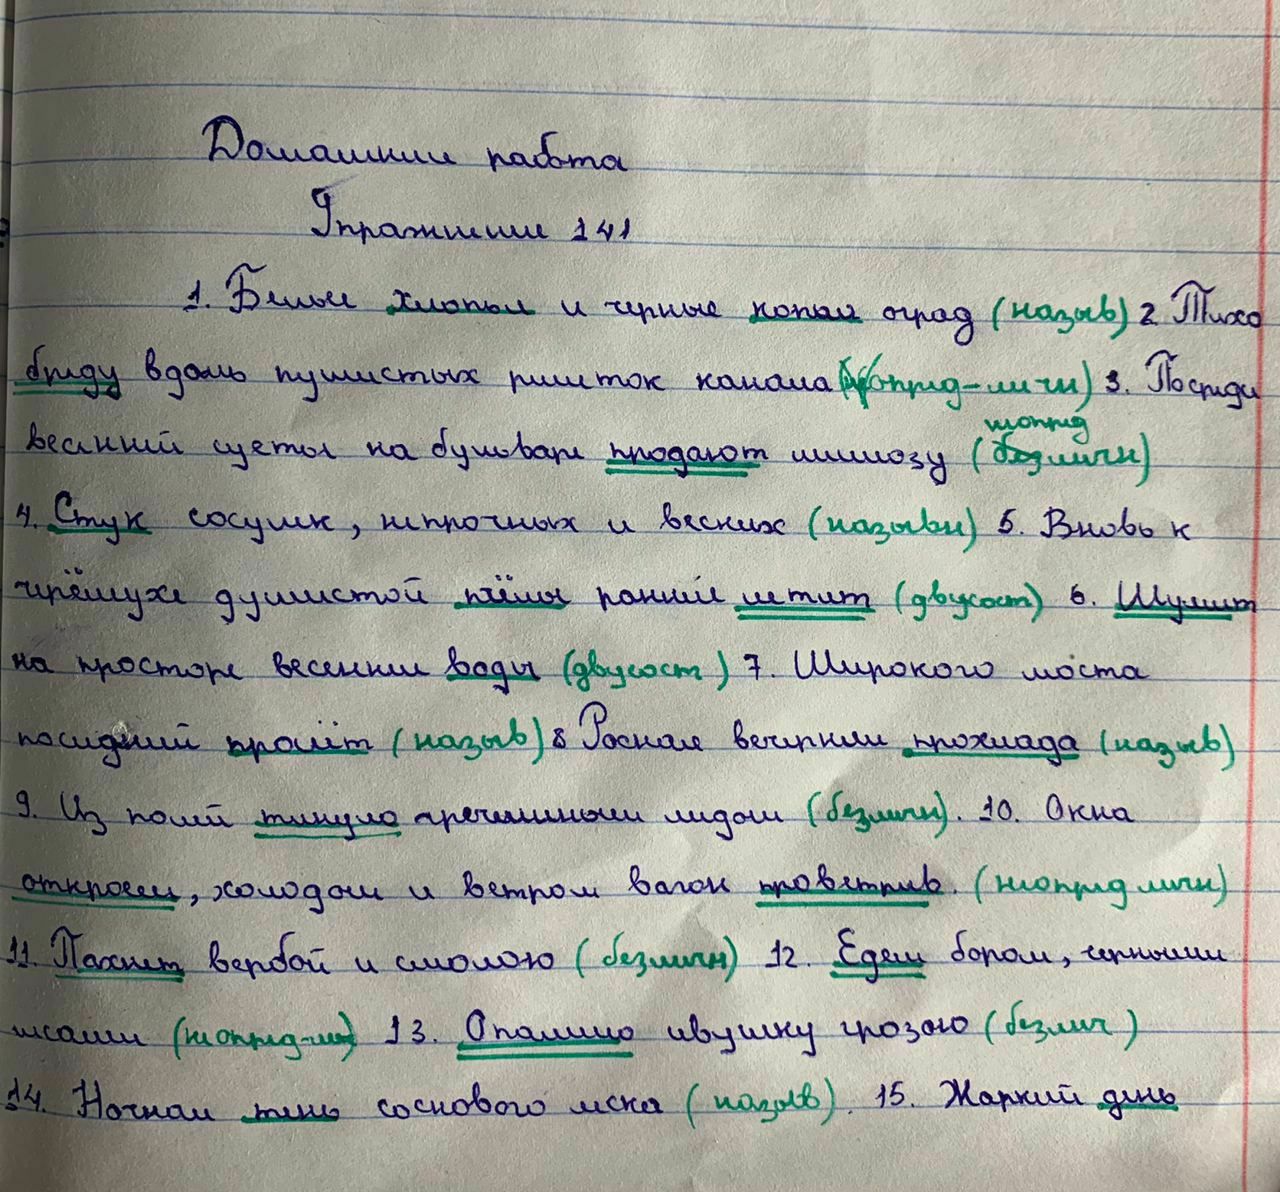 Домашняя работа
Упражнение 141
1. Белые хлопья и черные копья оград (назыв) 2 Тихо
бреду вдоль пушистых решеток канала (опред-личн) 3. Посреди
весенней суеты на бульваре продают мимозу (безличн)
неопред
4. Стук сосулек, непрочных и веских (назывн) 5. Вновь к
черёмухе душистой пчёлы ранний летит (двусост) 6. Шумят
на просторе весенние воды (двусост) 7. Широкого моста
последний пролёт (назыв) 8 Росная вечерняя прохлада (назыв)
9. Из полей тянуло гречишным медом (безличн). 10. Окна
откроем, холодом и ветром вагон проветрив. (неопред личн)
11. Пахнет вербой и смолою (безличн) 12. Едем бором, черными
лесами (неопред-ли) 13. Опалило ивушку грозою (безлич)
14. Ночная тень соснового леска (назыв). 15. Жаркий день